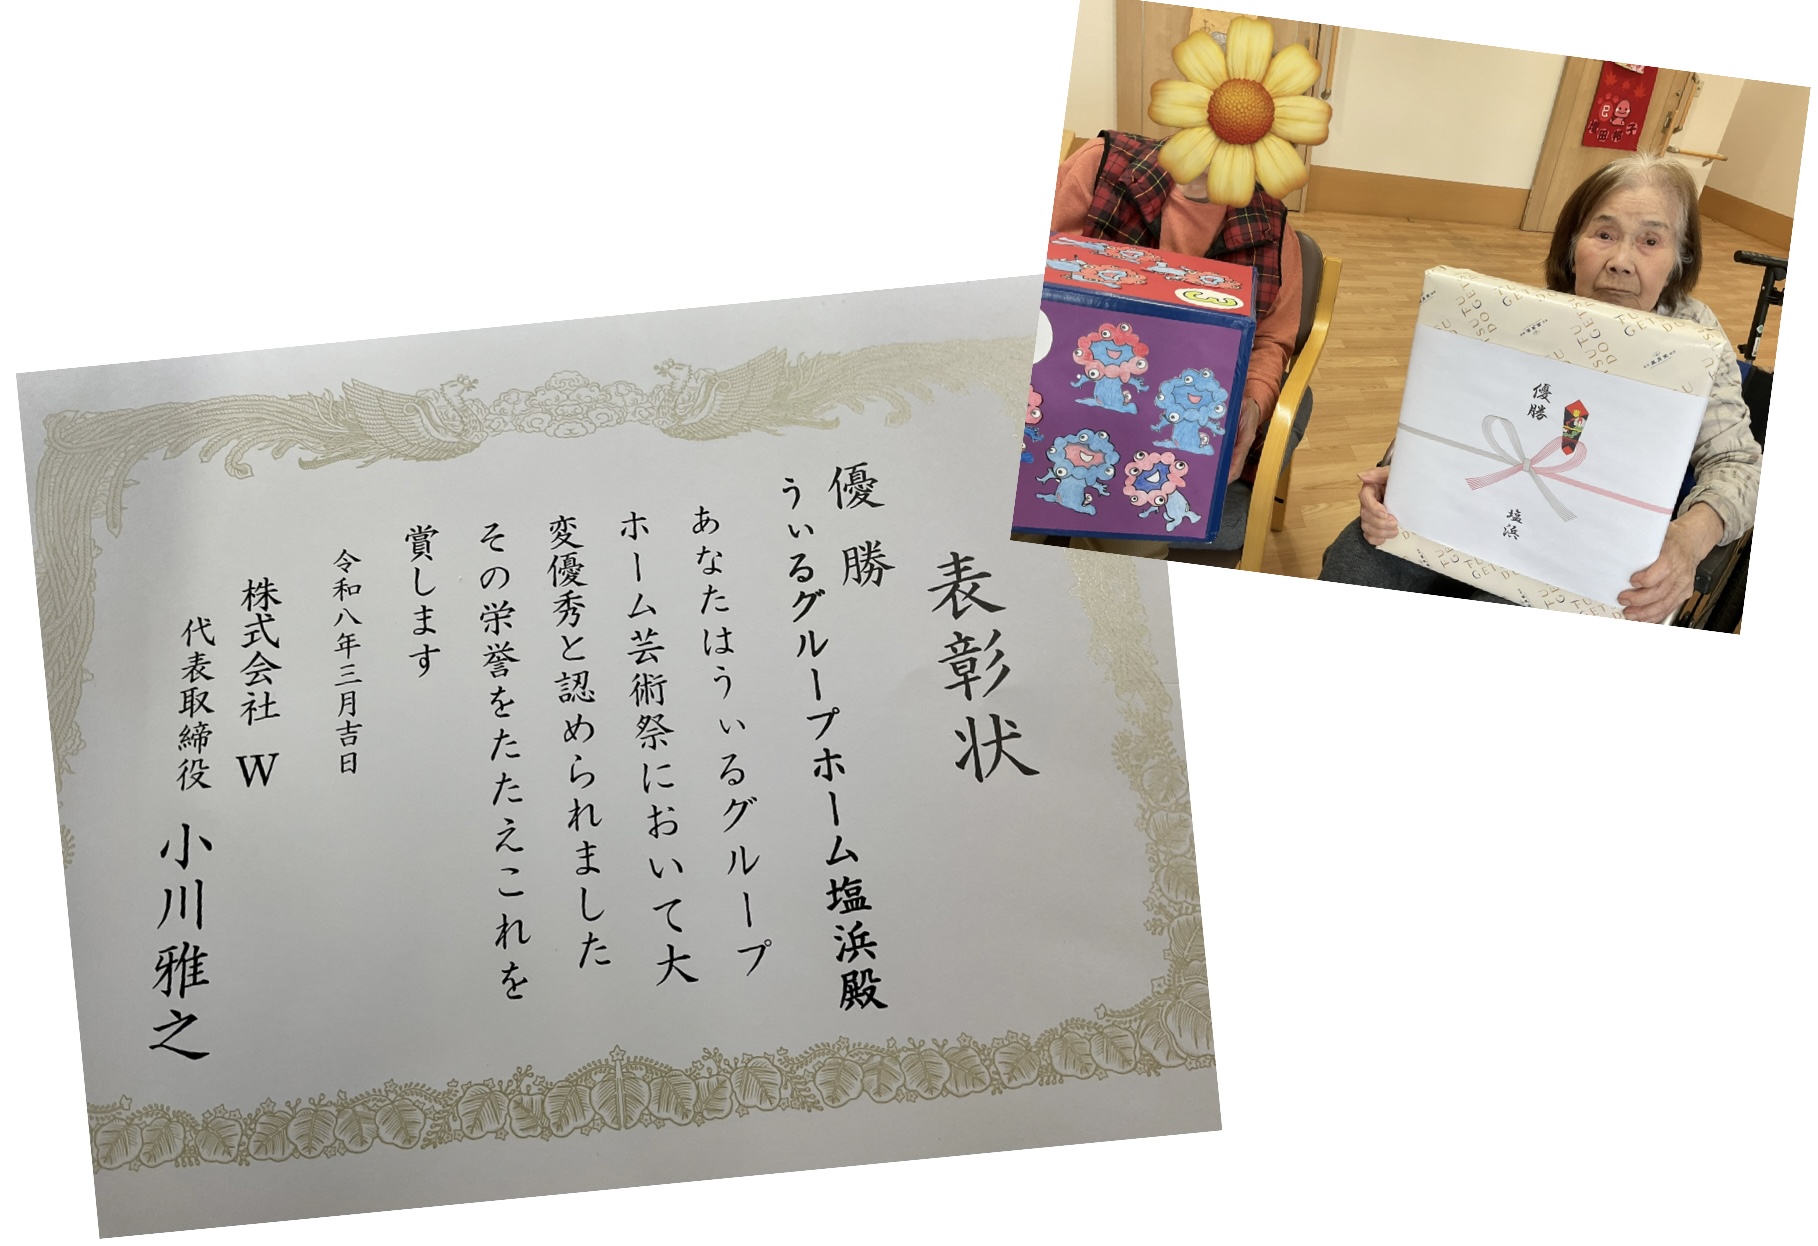 表彰状
優勝
うぃるグループホーム塩浜殿
あなたはうぃるグループ
ホーム芸術祭において大
変優秀と認められました
その栄誉をたたえこれを
賞します
令和八年三月吉日
株式会社 W
代表取締役 小川雅之
優勝
塩浜
3